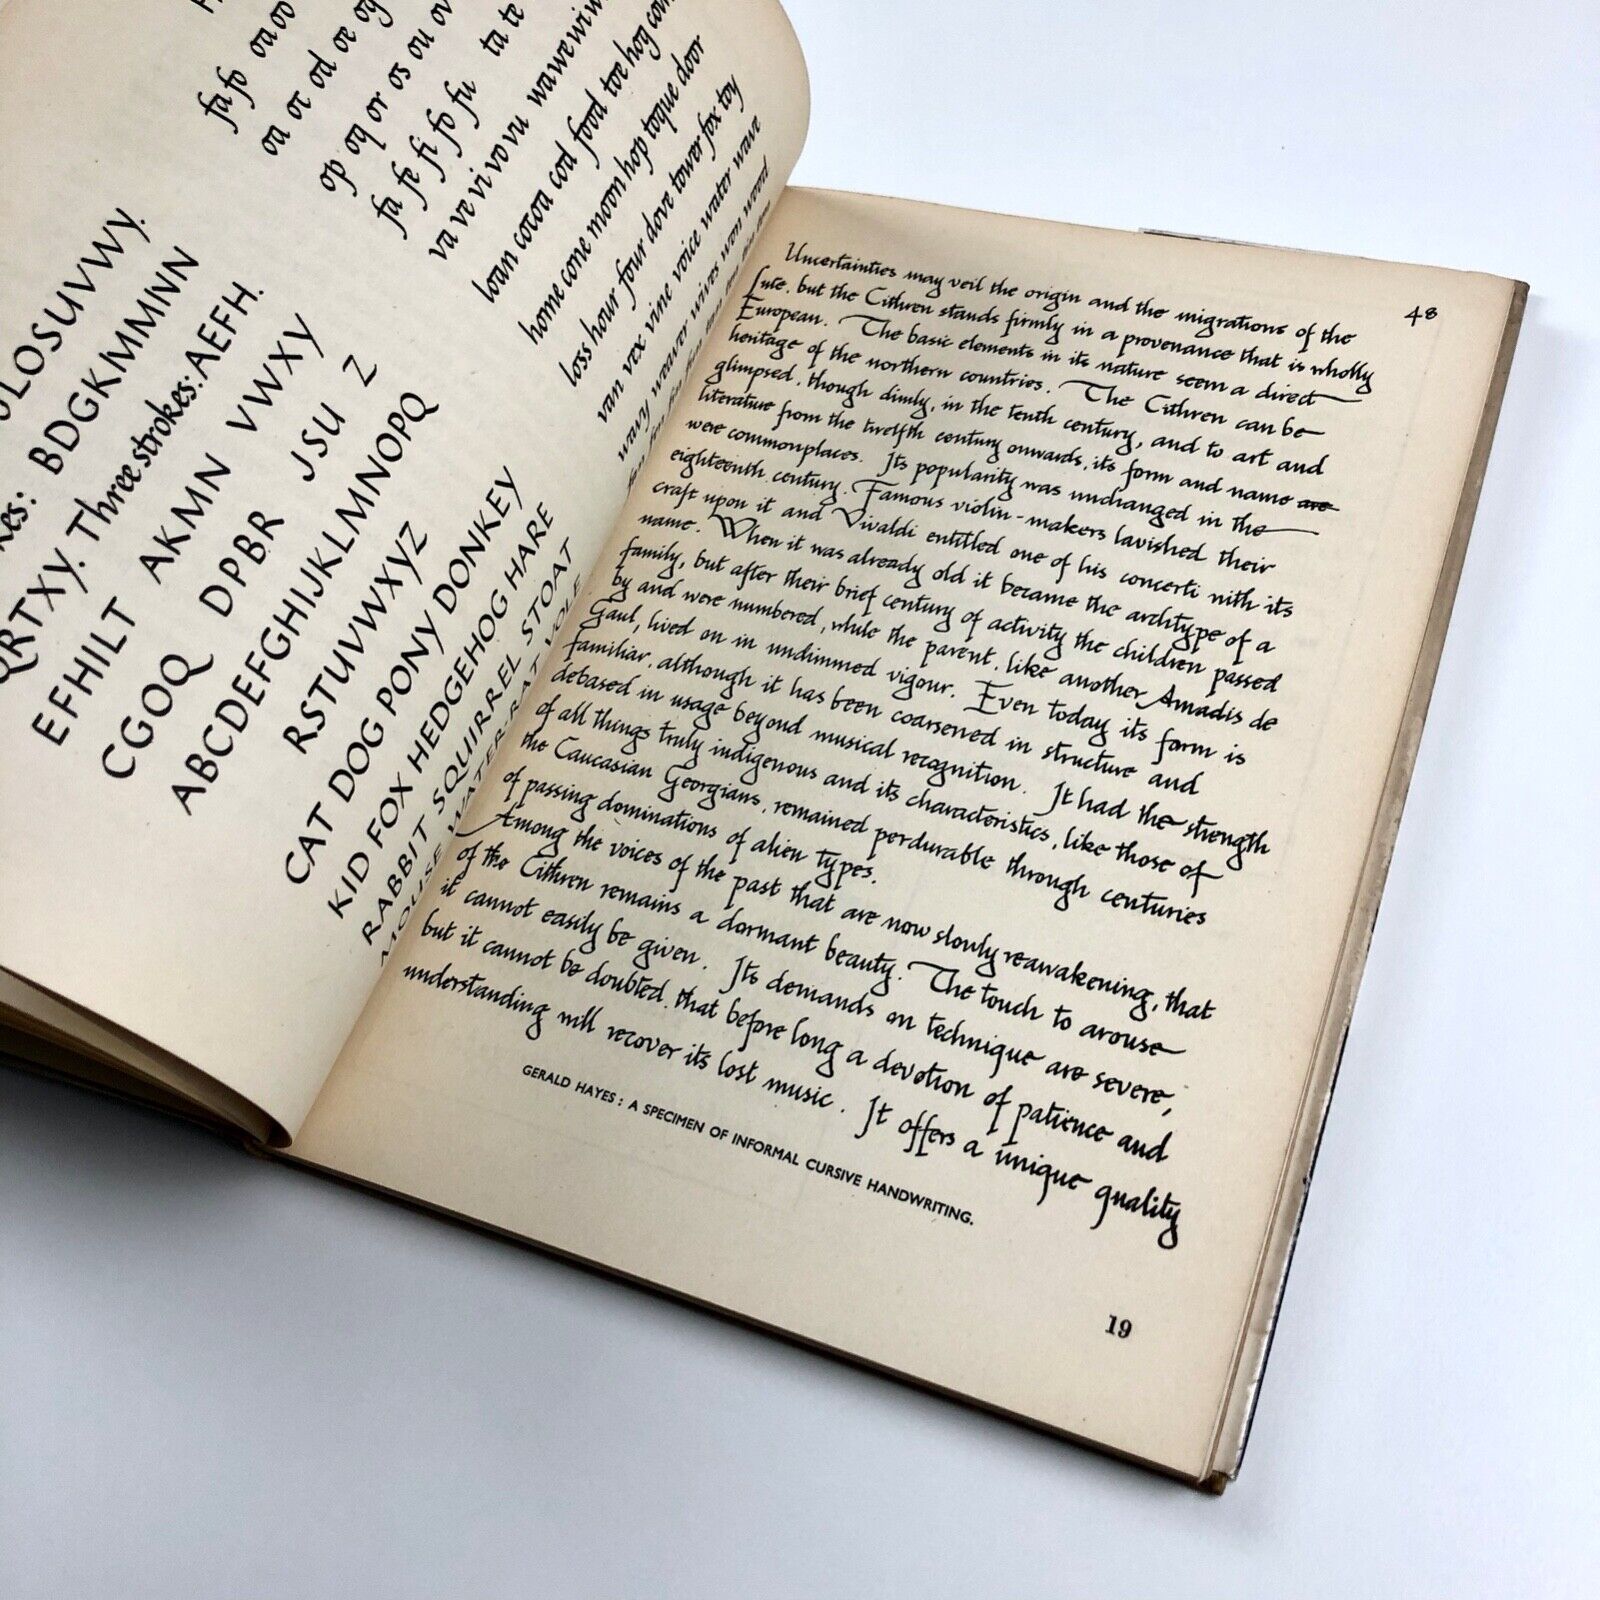 fa fo oa oo
oa oc od oe og
op oq or os ou ov
fa fe fi fo fu ta te
va ve vi vo vu wa we wi w
loan cocoa cod food toe hog com
home cone moon hop toque door
loss hour four dove tower fox toy
van vex vine voice water wave
wavy weaver wives won wood
LOSUVWY.
kes: BDGKMMNN
QRTXY. Three strokes: AEFH.
EFHILT AKMN VWXY
CGOQ DPBR JSU Z
ABCDEFGHIJKLMNOPQ
RSTUVWXYZ
CAT DOG PONY DONKEY
KID FOX HEDGEHOG HARE
RABBIT SQUIRREL STOAT
MOUSE WATER-RAT VOLE
48
Uncertainties may veil the origin and the migrations of the
lute, but the Cithren stands firmly in a provenance that is wholly
European. The basic elements in its nature seem a direct
heritage of the northern countries. The Cithren can be
glimpsed, though dimly, in the tenth century, and to art and
literature from the twelfth century onwards, its form and name are
were commonplaces. Its popularity was undhanged in the
eighteenth century. Famous violin-makers lavished their
craft upon it and Vivaldi entitled one of his concerti with its
name. When it was already old it became the archtype of a
family, but after their brief century of activity the children passed
by and were numbered, while the parent, like another Amadis de
Gaul, lived on in undimmed vigour. Even today its form is
familiar, although it has been coarsened in structure and
debased in usage beyond musical recognition. It had the strength
of all things truly indigenous and its characteristics, like those of
the Caucasian Georgians, remained perdurable through centuries
of passing dominations of alien types.
Among the voices of the past that are now slowly reawakening, that
of the Cithren remains a dormant beauty. The touch to arouse
it cannot easily be given. Its demands on technique are severe,
but it cannot be doubted, that before long a devotion of patience and
understanding will recover its lost music. It offers a unique quality
GERALD HAYES: A SPECIMEN OF INFORMAL CURSIVE HANDWRITING.
19